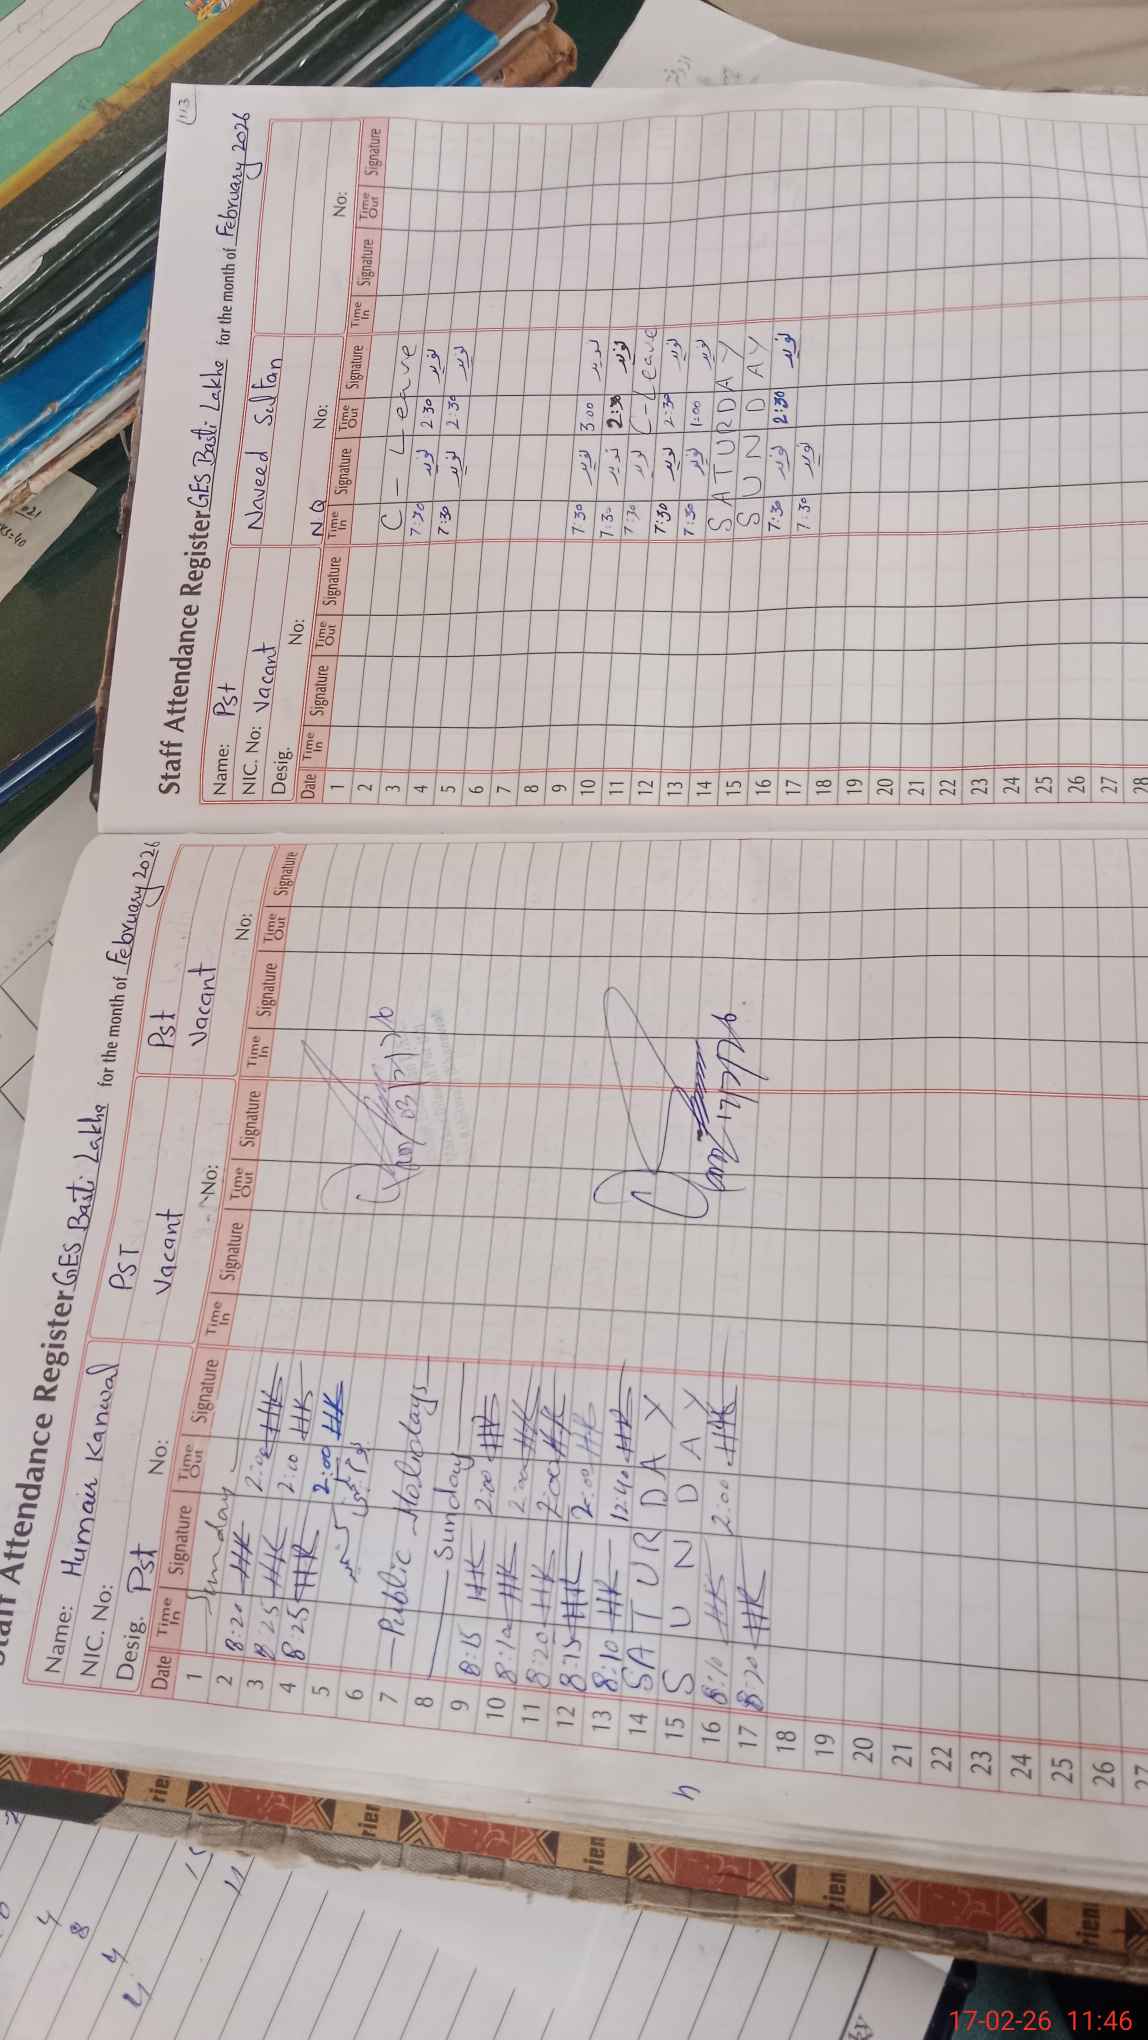 Staff Attendance Register GES Basti Lakha for the month of February 2026
Name: Humair Kanwal PST Pst
NIC. No: Vacant Vacant
Desig. Pst No: No: No:
Date Time In Signature Time Out Signature Time In Signature Time Out Signature Time In Signature Time Out Signature
1 Sunday
2 8:20 HK 2:00 HK
3 8:25 HK 2:00 HK
4 8:25 HK 2:00 HK
5
6
7 Public Holidays
8 Sunday
9 8:15 HK 2:00 HK
10 8:10 HK 2:00 HK
11 8:20 HK 2:00 HK
12 8:15 HK 2:00 HK
13 8:10 HK 12:40 HK
14 SATURDAY
15 SUNDAY
16 8:10 HK 2:00 HK
17 8:20 HK
18
19
20
21
22
23
24
25
26
27
113
Staff Attendance Register GES Basti Lakha for the month of February 2026
Name: Pst Naveed Sultan
NIC. No: Vacant
Desig. No: N.Q No: No:
Date Time In Signature Time Out Signature Time In Signature Time Out Signature Time In Signature Time Out Signature
1
2
3 C - Leave
4 7:30 نوید 2:30 نوید
5 7:30 نوید 2:30 نوید
6
7
8
9
10 7:30 نوید 3:00 نوید
11 7:30 نوید 2:30 نوید
12 7:30 نوید C-Leave
13 7:30 نوید 2:30 نوید
14 7:30 نوید 1:00 نوید
15 SATURDAY
16 SUNDAY
17 7:30 نوید 2:30 نوید
18 7:30 نوید
19
20
21
22
23
24
25
26
27
28
17-02-26 11:46